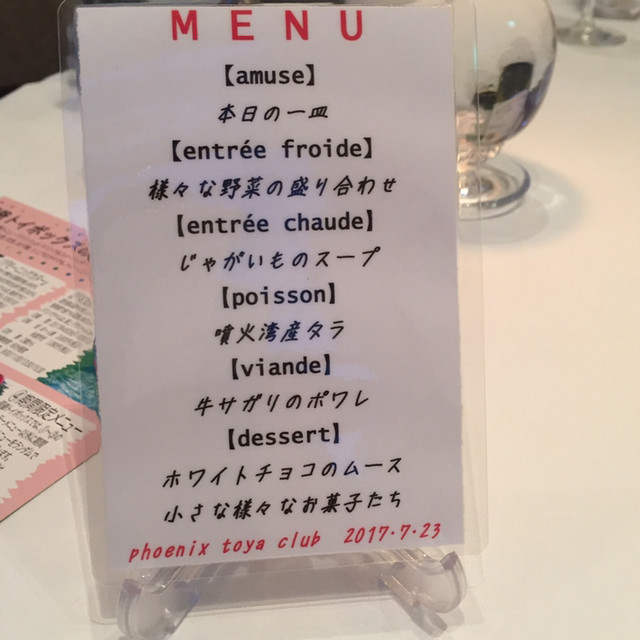 MENU
【amuse】
本日の一皿
【entrée froide】
様々な野菜の盛り合わせ
【entrée chaude】
じゃがいものスープ
【poisson】
噴火湾産タラ
【viande】
牛サガリのポワレ
【dessert】
ホワイトチョコのムース
小さな様々なお菓子たち
phoenix toya club 2017・7・23